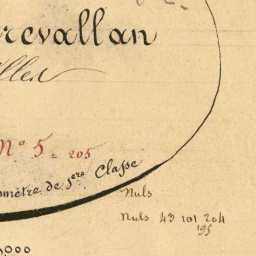 revallan
illes
N° 5 = 205
omètre de 1ère Classe
Nuls
Nuls 43 101 204
195
000